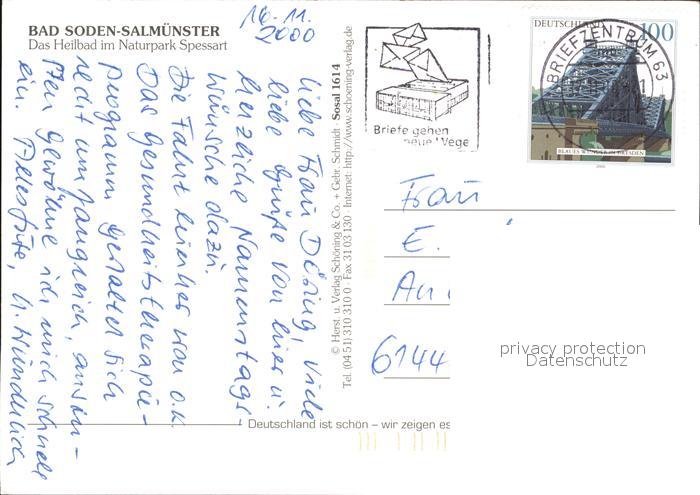 BAD SODEN-SALMÜNSTER
Das Heilbad im Naturpark Spessart
16.11.
2000
Liebe Frau Döring, viele
liebe Grüße von hier u.
herzliche Namenstags-
wünsche dazu.
Die Fahrt hierher war o.k.
Das Gesundheitstherapie-
programm gestaltet sich
recht umfangreich, anson-
sten gewöhne ich mich schnell
ein. Alles Gute, Wunderlich
© Herst. u. Verlag Schöning & Co. + Gebr. Schmidt · Sosal 1614
Tel. (04 51) 310 310 0 · Fax 31 03 130 · Internet: http://www.schoening-verlag.de
Briefe gehen
neue Wege
DEUTSCHLAND 100
BRIEFZENTRUM 63
BLAUES WUNDER IN DRESDEN
Frau
E.
An
6144
privacy protection
Datenschutz
Deutschland ist schön – wir zeigen es